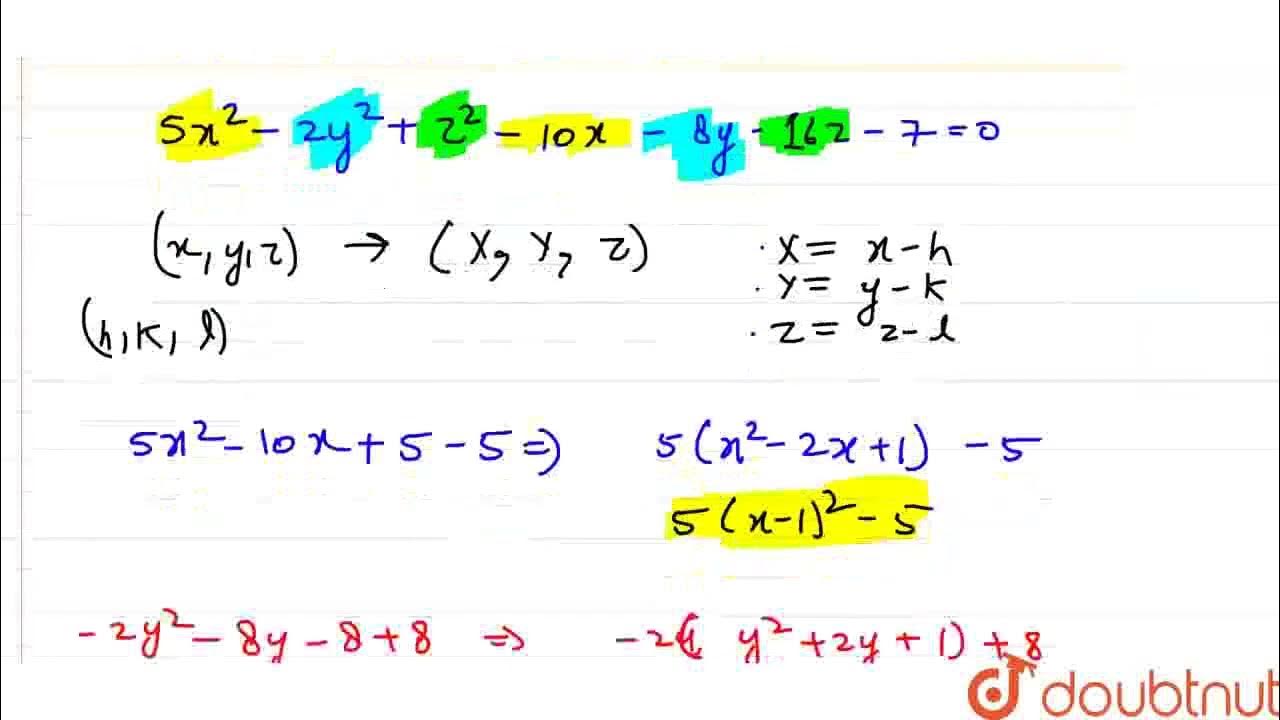 5x² - 2y² + z² - 10x - 8y - 16z - 7 = 0
(x, y, z) → (X, Y, Z) · X = x - h
· Y = y - k
(h, k, l) · Z = z - l
5x² - 10x + 5 - 5 ⇒ 5(x² - 2x + 1) - 5
5(x-1)² - 5
-2y² - 8y - 8 + 8 ⇒ -2( y² + 2y + 1) + 8
doubtnut